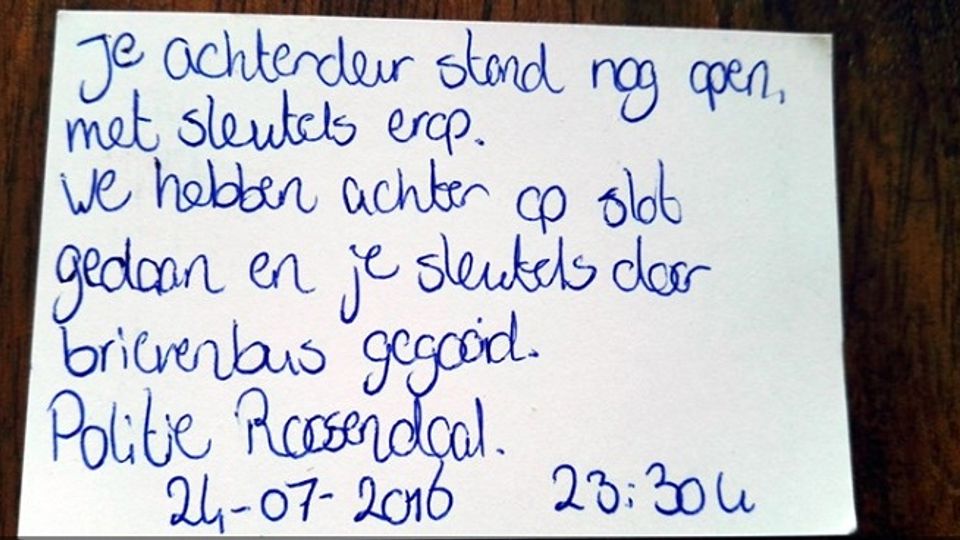 Je achterdeur stond nog open,
met sleutels erop.
We hebben achter op slot
gedaan en je sleutels door
brievenbus gegooid.
Politie Roosendaal.
24-07-2016 23:30 u